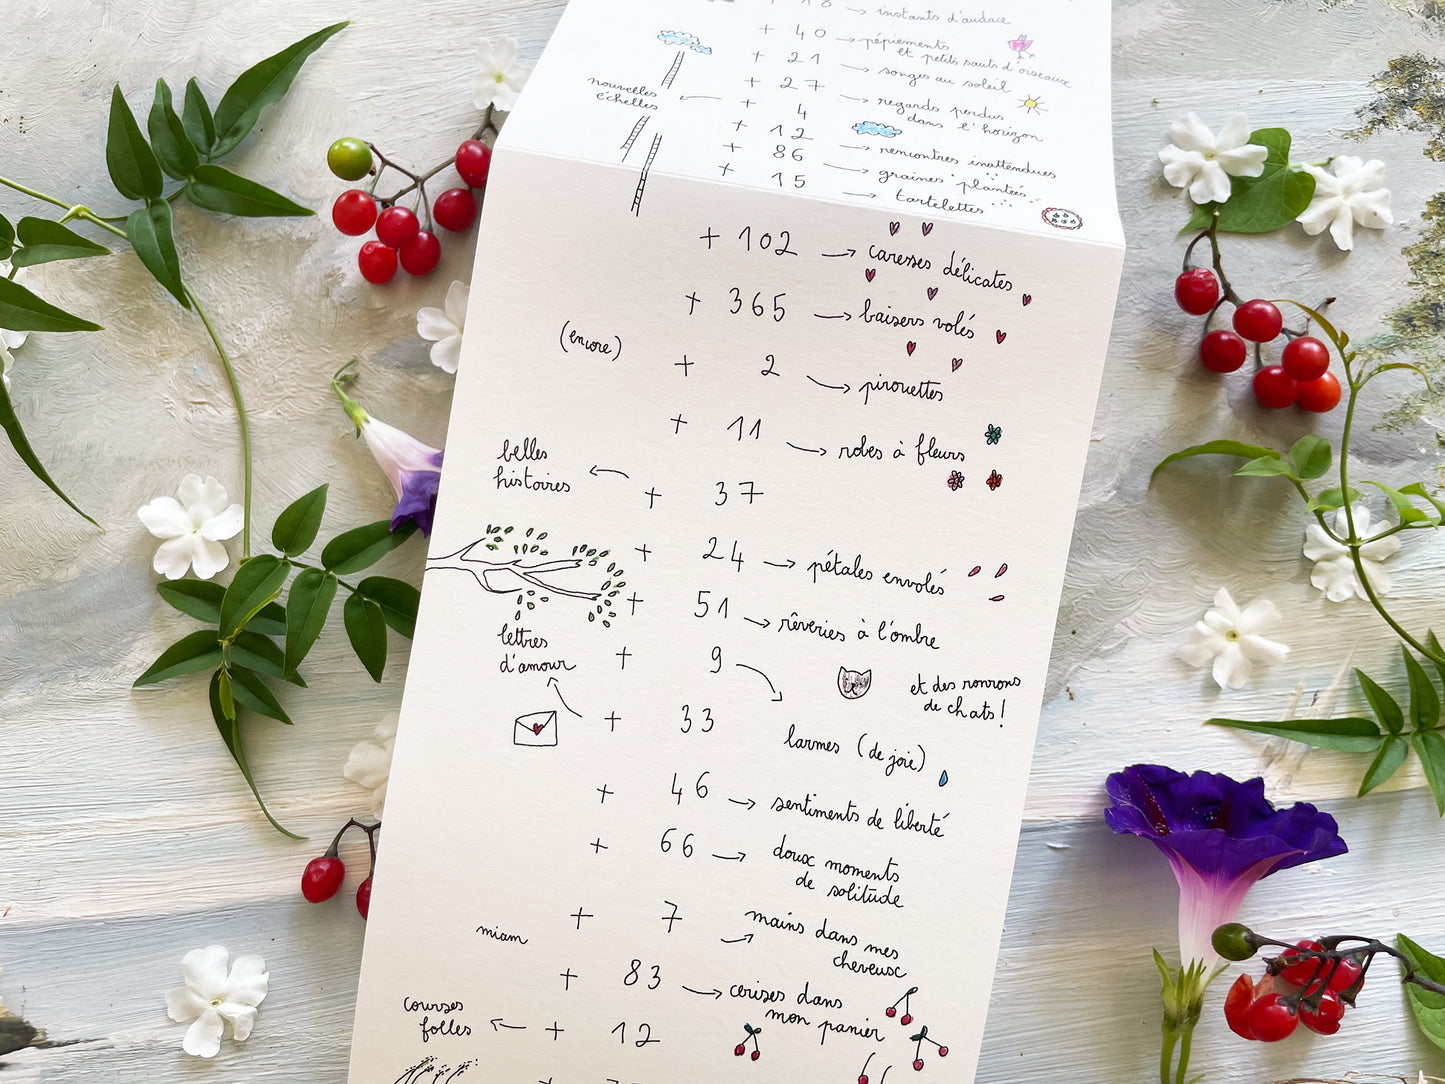 + 18 → instants d'audace
+ 40 → pépiements
et petits sauts d'oiseaux
+ 21 → songes au soleil
+ 27 → regards perdus
dans l'horizon
nouvelles
échelles
← + 4
+ 12 → rencontres inattendues
+ 86 → graines plantées
+ 15 → tartelettes
+ 102 → caresses délicates
+ 365 → baisers volés
(encore)
+ 2 → pirouettes
+ 11 → robes à fleurs
belles
histoires
← + 37
+ 24 → pétales envolés
+ 51 → rêveries à l'ombre
+ 9 → larmes (de joie)
et des ronrons
de chats!
lettres
d'amour
← + 33
+ 46 → sentiments de liberté
+ 66 → doux moments
de solitude
+ 7 → mains dans mes
cheveux
miam
+ 83 → cerises dans
mon panier
courses
folles
← + 12